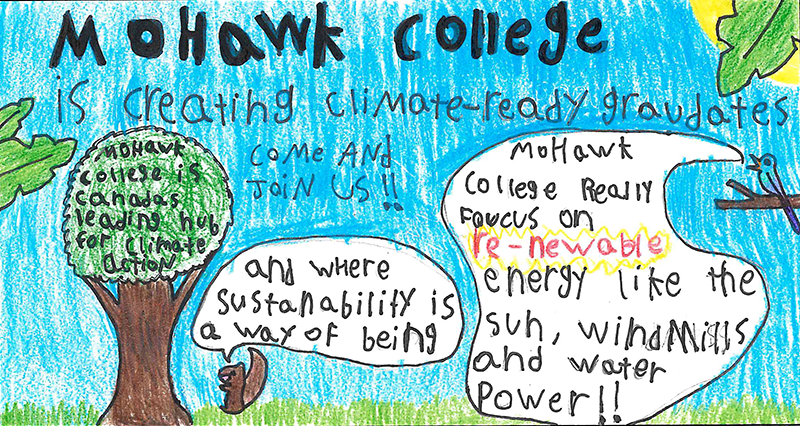 MoHawk College
is creating climate-ready graudates
COME AND
JOIN US!!
MOHAWK
College is
Canadas
leading hub
for climate
action
and where
sustanability is
a way of being
MOHawk
College Really
Foucus on
re-newable
energy like the
sun, windMills
and water
Power!!